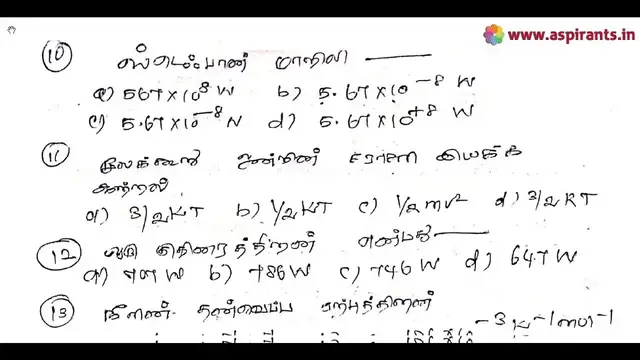 www.aspirants.in
10) ஸ்டெஃபான் மாறிலி ———
a) 567×10⁸ W b) 5.67×10⁻⁸ W
c) 5.67×10⁻⁸ N d) 5.67×10⁺⁸ W
11) மூலக்கூறு ஒன்றின் சராசரி இயக்க
ஆற்றல்
a) 3/2 KT b) 1/2 KT c) 1/2 mv² d) 3/2 RT
12) ஒரு குதிரைத்திறன் என்பது ———
b) 786 W c) 746 W d) 647 W
13) தன்வெப்ப
⁻³ K⁻¹ mol⁻¹